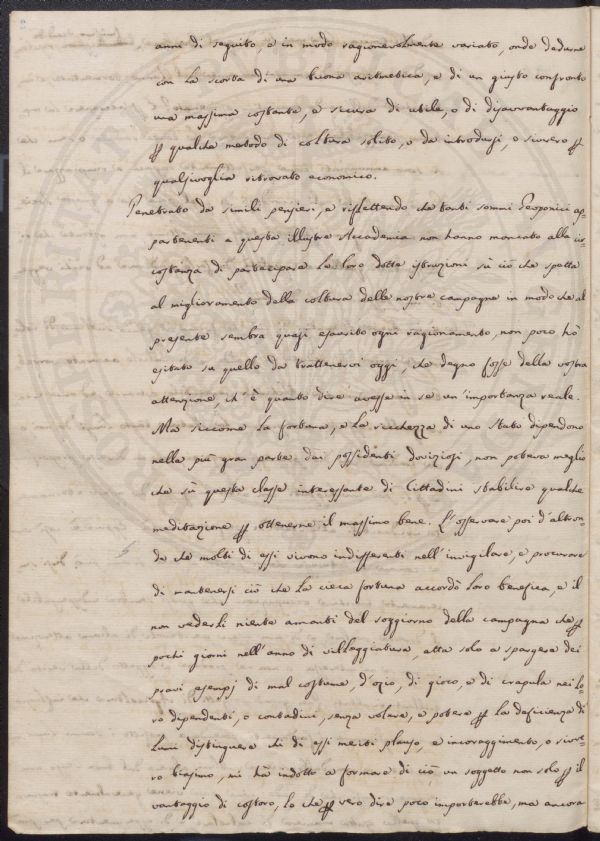 anni di seguito, e in modo ragionevolmente variato, onde dedurne
con la scorta di una buona aritmetica, e di un giusto confronto
una massima costante, e sicura di utile, o di disavvantaggio
per qualche metodo di coltura solito, o da introdursi, o sivvero per
qualsivoglia ritrovato economico.
Penetrato da simili pensieri, e riflettendo che tanti sommi Geoponici ap-
partenenti a questa illustre Accademia non hanno mancato alla cir-
costanza di partecipare le loro dotte istruzioni sù ciò che spetta
al miglioramento della coltura delle nostre campagne in modo che al
presente sembra quasi esaurito ogni ragionamento, non poco hò
esitato su quello da trattenervi oggi, che degno fosse della vostra
attenzione, ch'è quanto dire avesse in se un'importanza reale.
Ma siccome la fortuna, e la ricchezza di uno Stato dipendono
nella più gran parte dai possidenti doviziosi, non poteva meglio
che sù questa classe interessante di Cittadini stabilire qualche
meditazione per ottenerne il massimo bene. L'osservare poi d'altron-
de che molti di essi vivono indifferenti nell'invigilare, e procurare
di mantenersi ciò che la cieca fortuna accordò loro benefica, e il
non vederli niente amanti del soggiorno della campagna che per
pochi giorni nell'anno di villeggiatura, atta solo a spargere dei
pravi esempj di mal costume, d'ozio, di gioco, e di crapula nei lo-
ro dipendenti, o contadini, senza volere, e potere per la deficienza di
lumi distinguere chi di essi meriti plauso, e incoraggimento, o sivve-
ro biasimo, mi hà indotto a formare di ciò un soggetto non solo per il
vantaggio di costoro, lo che per vero dire poco importerebbe, ma ancora